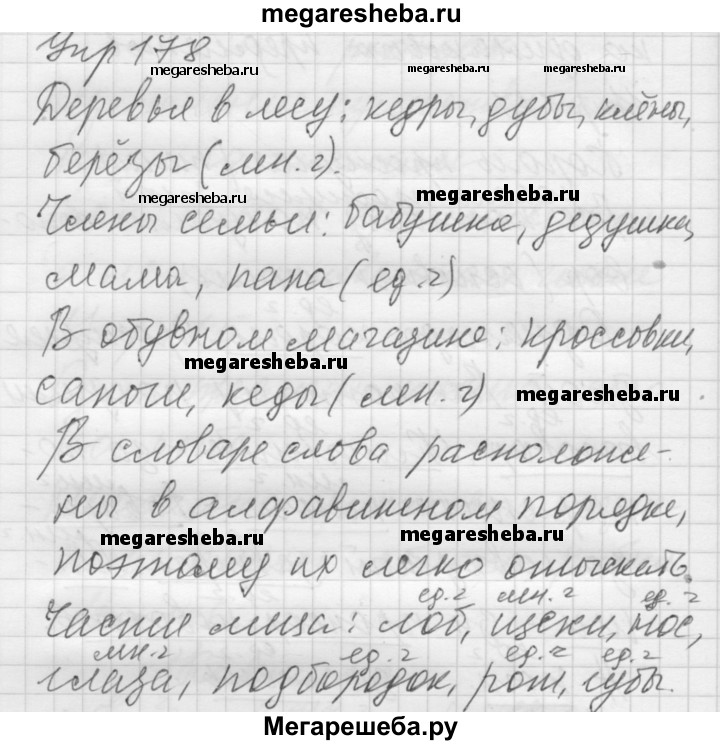 megaresheba.ru
Упр 178
megaresheba.ru megaresheba.ru megaresheba.ru
Деревья в лесу: кедры, дубы, клёны,
берёзы (мн. ч).
megaresheba.ru megaresheba.ru
Члены семьи: бабушка, дедушка,
мама, папа (ед. ч)
В обувном магазине: кроссовки,
megaresheba.ru
сапоги, кеды (мн. ч)
megaresheba.ru
В словаре слова расположе-
ны в алфавитном порядке,
megaresheba.ru megaresheba.ru
поэтому их легко отыскать.
ед. ч мн. ч ед. ч
Части лица: лоб, щеки, нос,
мн. ч ед. ч ед. ч ед. ч
глаза, подбородок, рот, губы.
Мегарешеба.ру